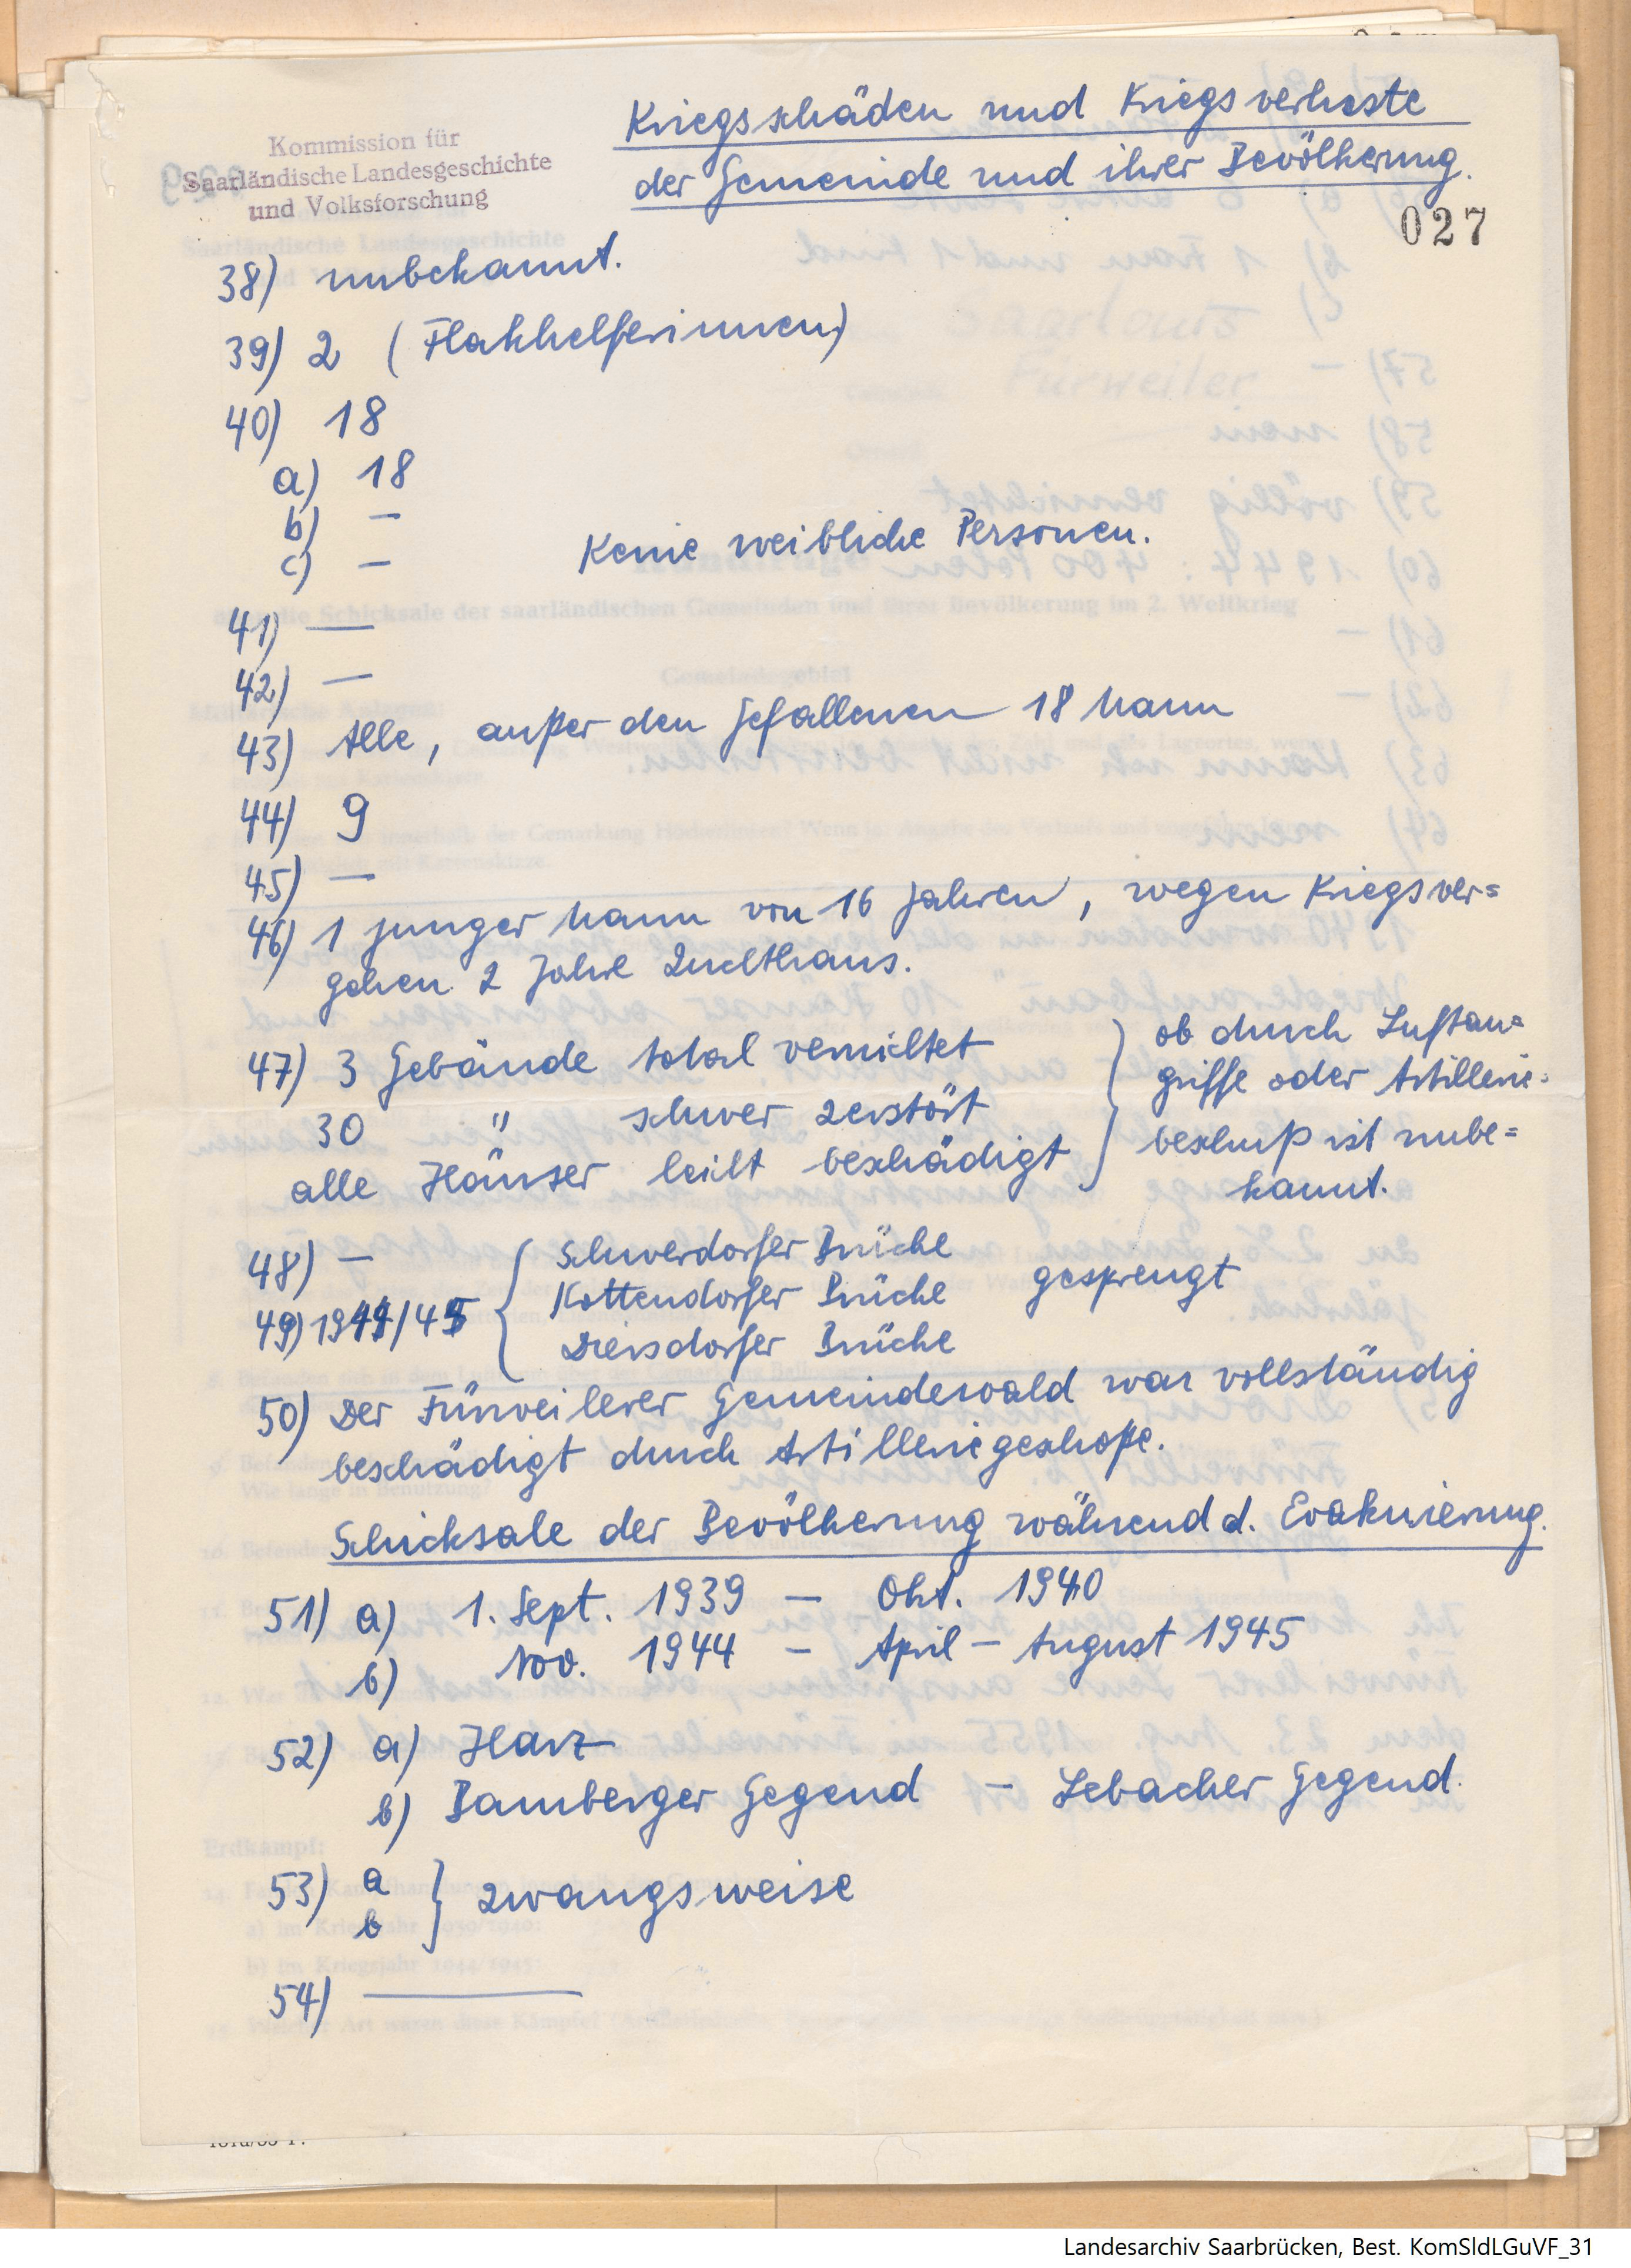 Kommission für
Saarländische Landesgeschichte
und Volksforschung
Kriegsschäden und Kriegsverluste
der Gemeinde und ihrer Bevölkerung.
027
38) unbekannt.
39) 2 (Flakhelferinnen)
40) 18
a) 18
b) —
c) —
Keine weibliche Personen.
41) —
42) —
43) Alle, außer den Gefallenen 18 Mann
44) 9
45) —
46) 1 junger Mann von 16 Jahren, wegen Kriegsver=
gehen 2 Jahre Zuchthaus.
47) 3 Gebäude total vernichtet
30 " schwer zerstört
alle Häuser leicht beschädigt
ob durch Luftan=
griffe oder Artillerie=
beschuß ist unbe=
kannt.
48) —
49) 1944/45
Schwerdorfer Brücke
Kottendorfer Brücke
Diersdorfer Brücke
gesprengt
50) Der Fürweilerer Gemeindewald war vollständig
beschädigt durch Artilleriegeschoße.
Schicksale der Bevölkerung während d. Evakuierung.
51) a) 1. Sept. 1939 — Okt. 1940
b) Nov. 1944 — April — August 1945
52) a) Harz
b) Bamberger Gegend — Lebacher Gegend.
53) a
b } zwangsweise
54) —
Landesarchiv Saarbrücken, Best. KomSldLGuVF_31